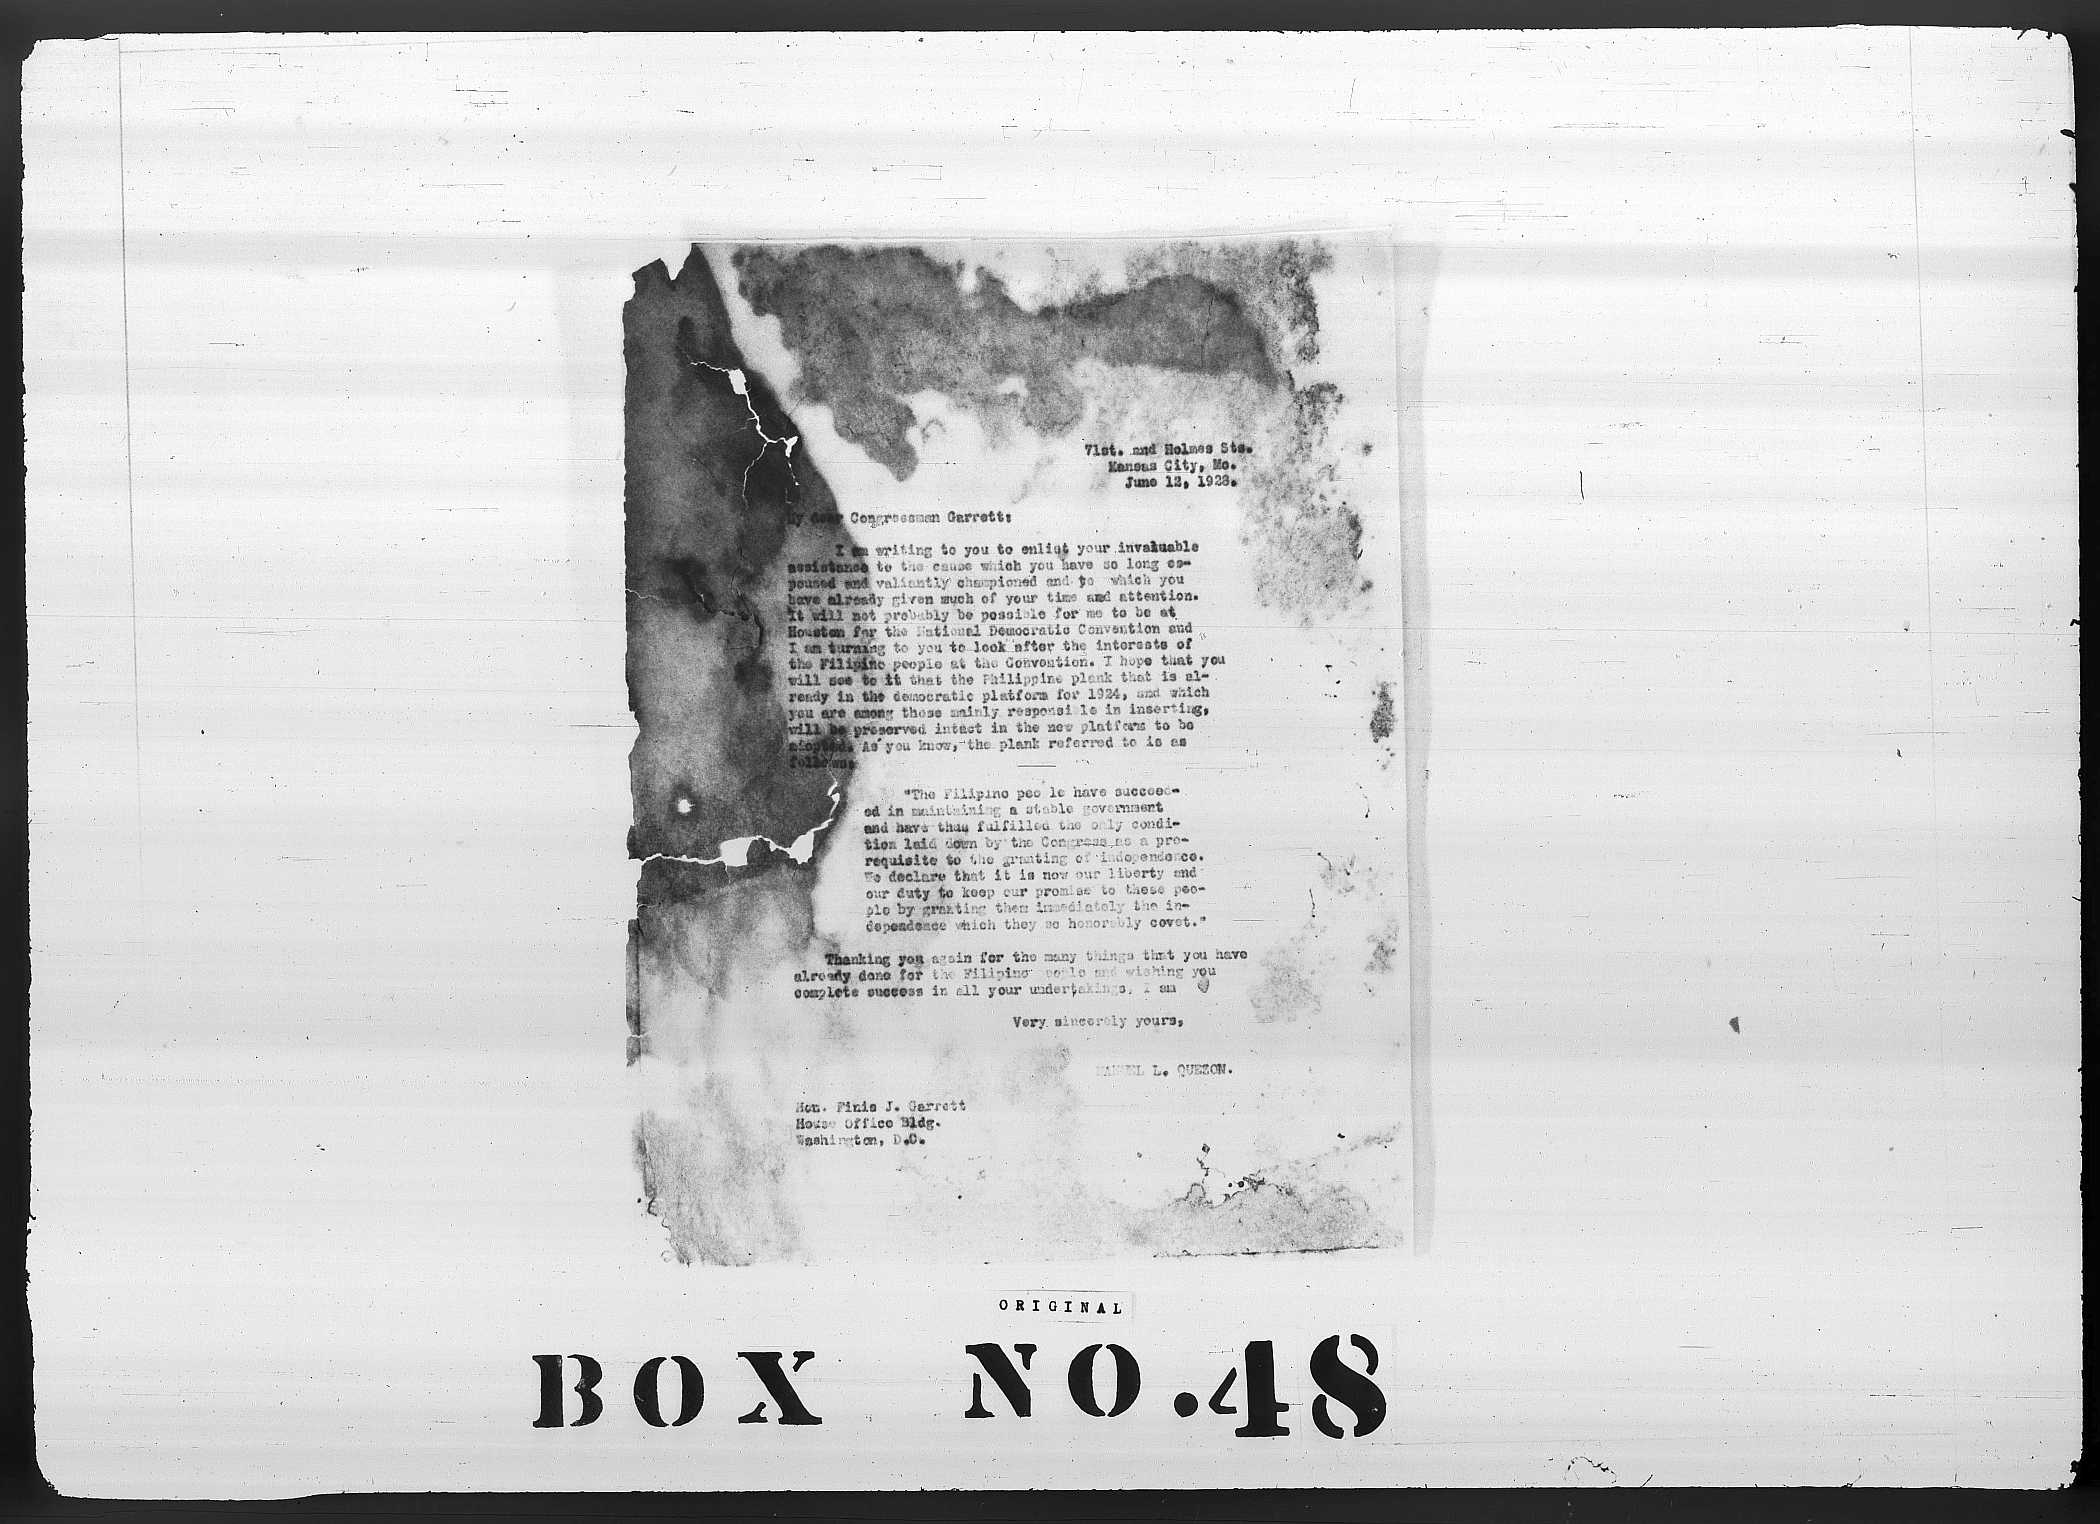 71st. and Holmes Sts.
Kansas City, Mo.
June 12, 1928.
My dear Congressman Garrett:
I am writing to you to enlist your invaluable
assistance to the cause which you have so long es-
poused and valiantly championed and to which you
have already given much of your time and attention.
It will not probably be possible for me to be at
Houston for the National Democratic Convention and
I am turning to you to look after the interests of
the Filipino people at the Convention. I hope that you
will see to it that the Philippine plank that is al-
ready in the democratic platform for 1924, and which
you are among those mainly responsible in inserting,
will be preserved intact in the new platform to be
adopted. As you know, the plank referred to is as
follows:
"The Filipino people have succeed-
ed in maintaining a stable government
and have thus fulfilled the only condi-
tion laid down by the Congress as a pre-
requisite to the granting of independence.
We declare that it is now our liberty and
our duty to keep our promise to these peo-
ple by granting them immediately the in-
dependence which they so honorably covet."
Thanking you again for the many things that you have
already done for the Filipino people and wishing you
complete success in all your undertakings, I am
Very sincerely yours,
MANUEL L. QUEZON.
Hon. Finis J. Garrett
House Office Bldg.
Washington, D.C.
ORIGINAL
BOX NO.48